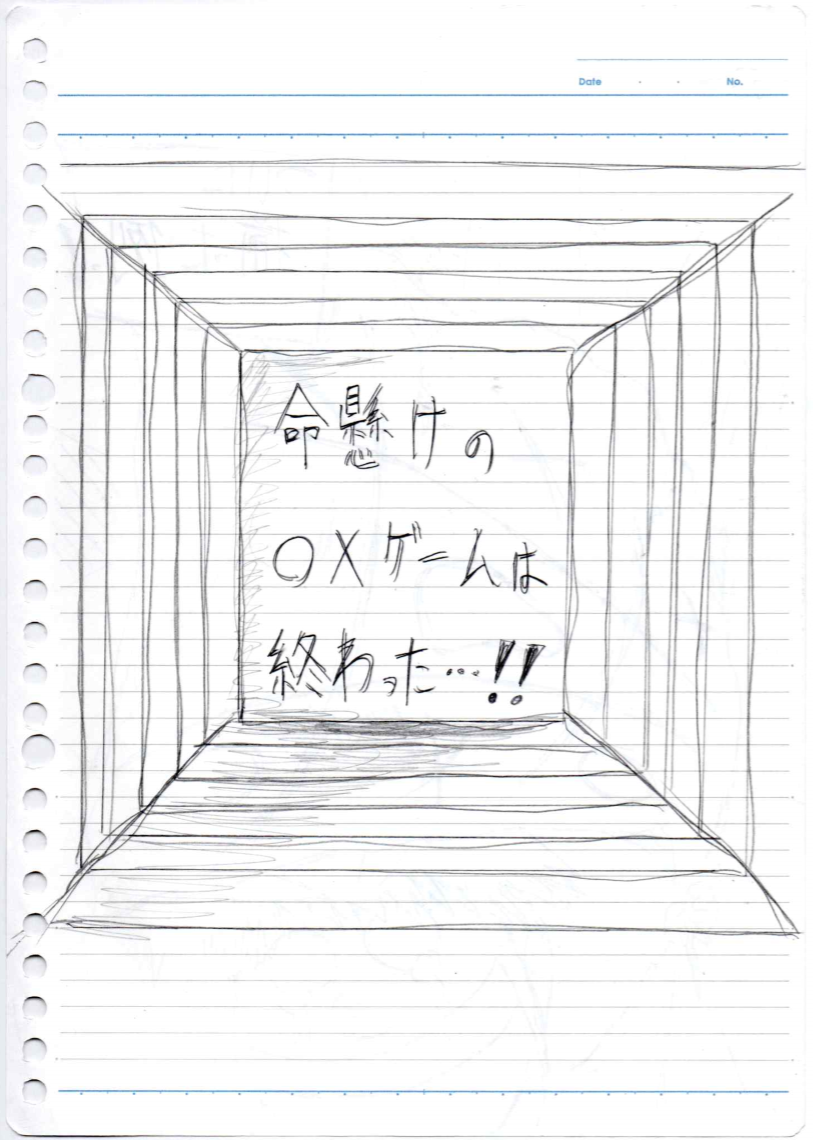 Date ・ ・ No.
命懸けの
○×ゲームは
終わった…!!